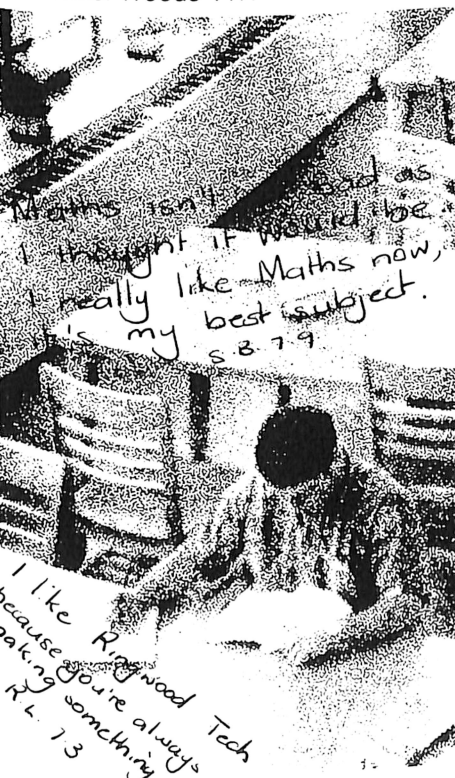 Maths isn't bad as
I thought it would be.
I really like Maths now,
it's my best subject.
S.B. 7.9.
I like Ringwood Tech
because you're always
making something
R.L. 7.3